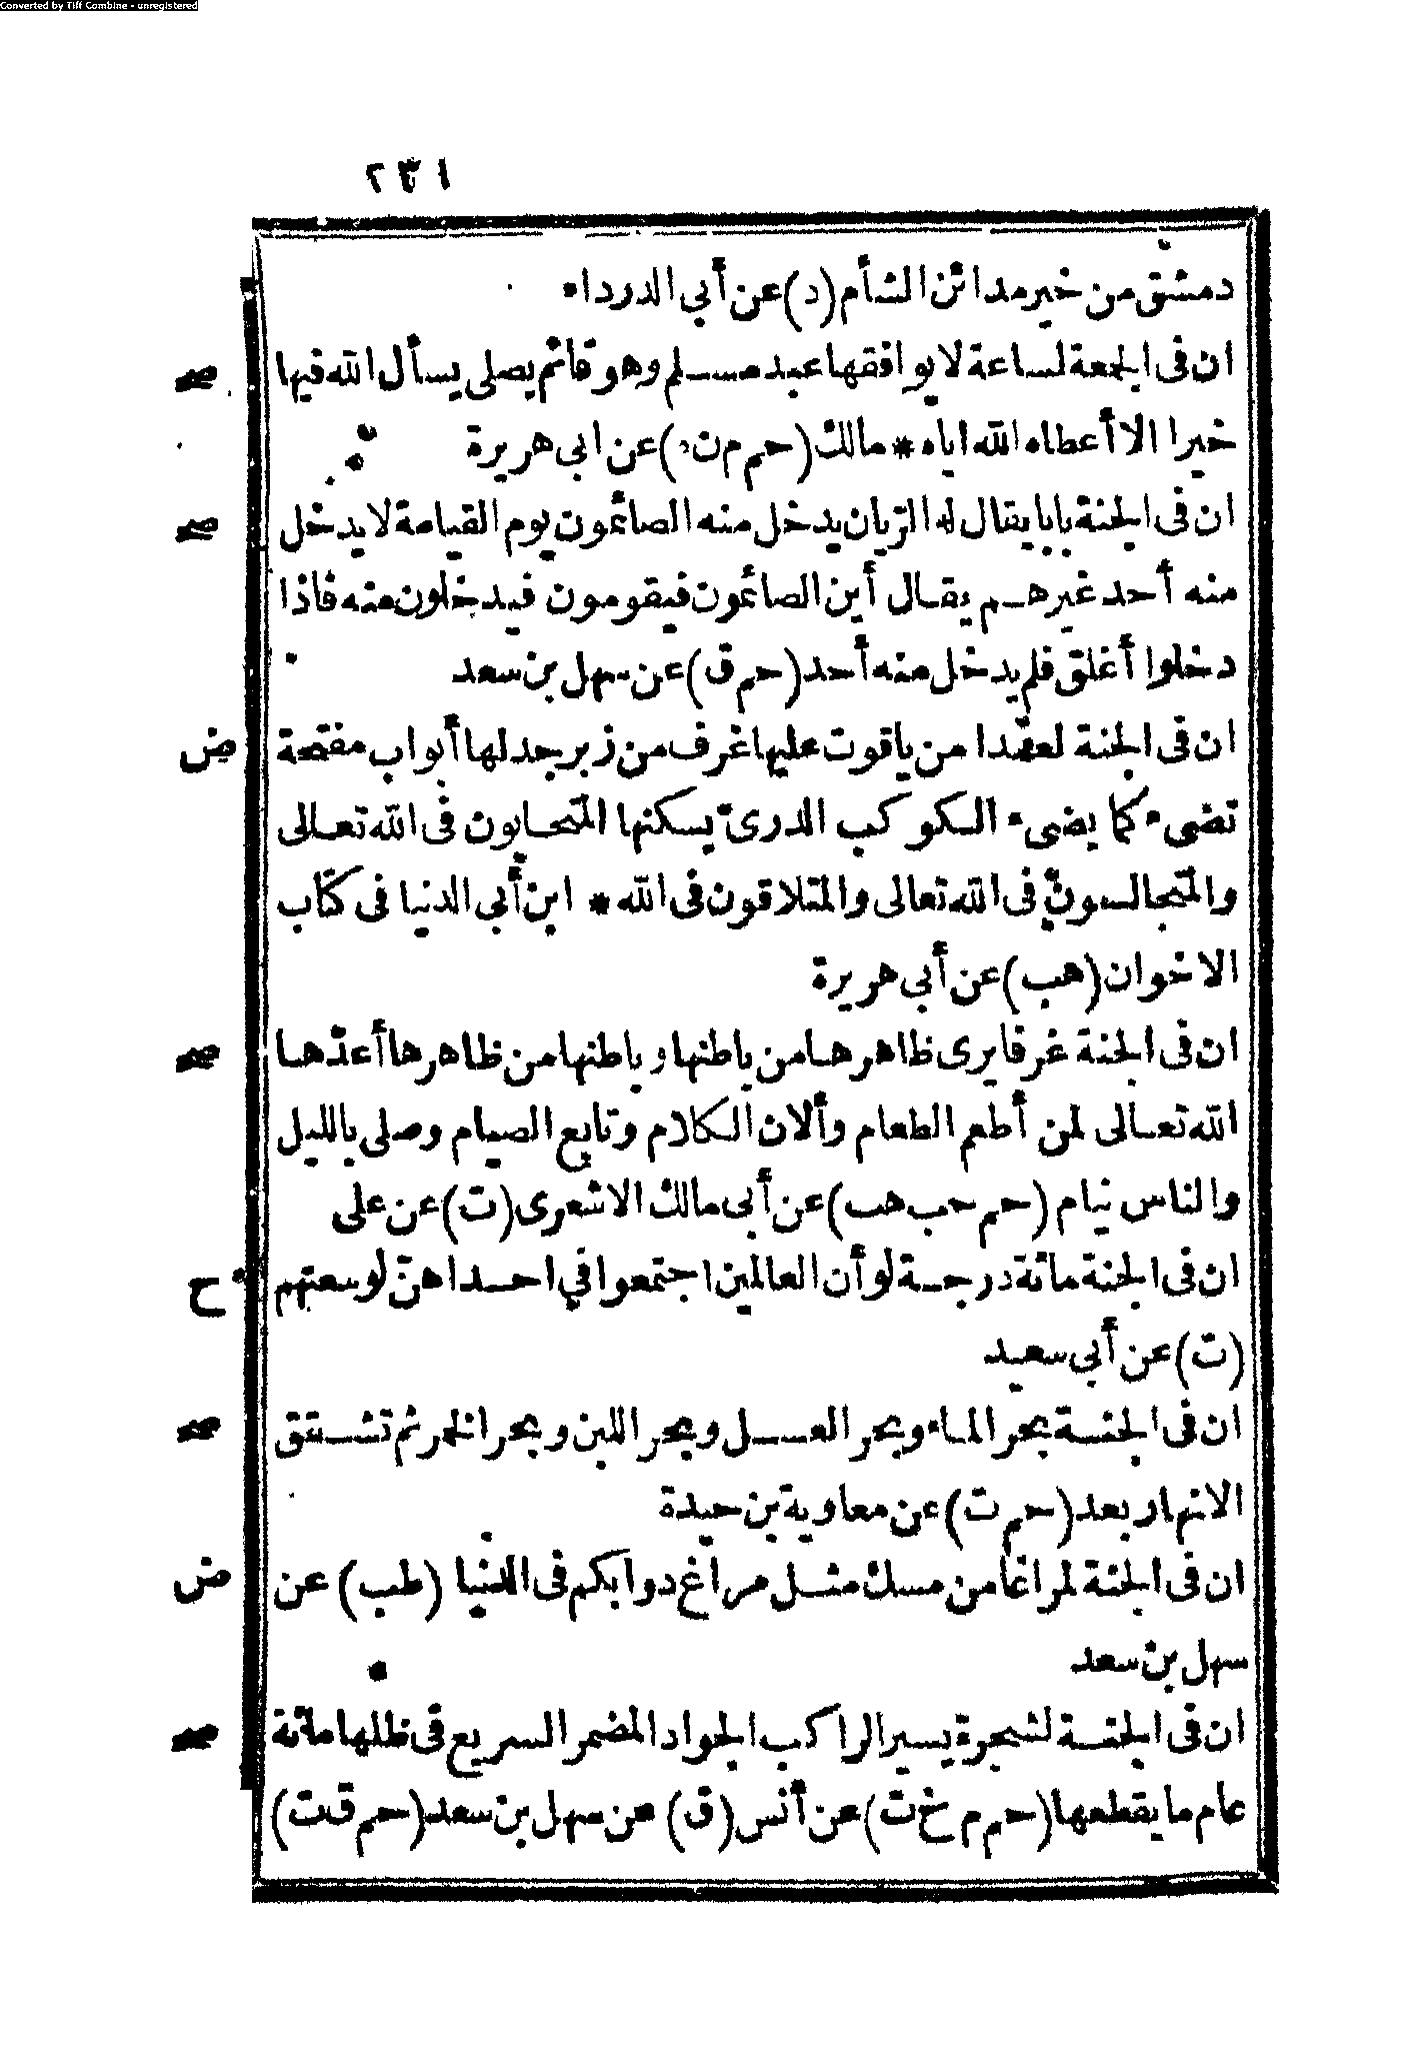 Converted by Tiff Combine - unregistered
٢٣١
دمشق من خير مدائن الشأم (د) عن أبي الدرداء
ان فى الجمعة لساعة لا يوافقها عبد مسلم وهو قائم يصلى يسأل الله فيها
صح
خيرا الا أعطاه الله اياه * مالك (حم م ن ه) عن ابى هريرة
ان فى الجنة بابا يقال له الريان يدخل منه الصائمون يوم القيامة لا يدخل
صح
منه أحد غيرهم يقال أين الصائمون فيقومون فيدخلون منه فاذا
دخلوا أغلق فلم يدخل منه أحد (حم ق) عن سهل بن سعد
ان فى الجنة لعمدا من ياقوت عليها غرف من زبرجد لها أبواب مفتحة
ض
تضىء كما يضىء الكوكب الدرىّ يسكنها المتحابون فى الله تعالى
والمتجالسون فى الله تعالى والمتلاقون فى الله * ابن أبي الدنيا فى كتاب
الاخوان (هب) عن أبي هريرة
ان فى الجنة غرفا يرى ظاهرها من باطنها وباطنها من ظاهرها أعدّها
صح
الله تعالى لمن أطعم الطعام وألان الكلام وتابع الصيام وصلى بالليل
والناس نيام (حم حب هب) عن أبى مالك الاشعرى (ت) عن على
ان فى الجنة مائة درجة لو أن العالمين اجتمعوا في احداهنّ لوسعتهم
ح
(ت) عن أبي سعيد
ان فى الجنة بحر الماء وبحر العسل وبحر اللبن وبحر الخمر ثم تشقق
صح
الانهار بعد (حم ت) عن معاوية بن حيدة
ان فى الجنة لمراغا من مسك مثل مراغ دوابكم فى الدنيا (طب) عن
ض
سهل بن سعد
ان فى الجنة لشجرة يسير الراكب الجواد المضمر السريع فى ظلها مائة
صح
عام ما يقطعها (حم م خ ت) عن أنس (ق) عن سهل بن سعد (حم ق ت)